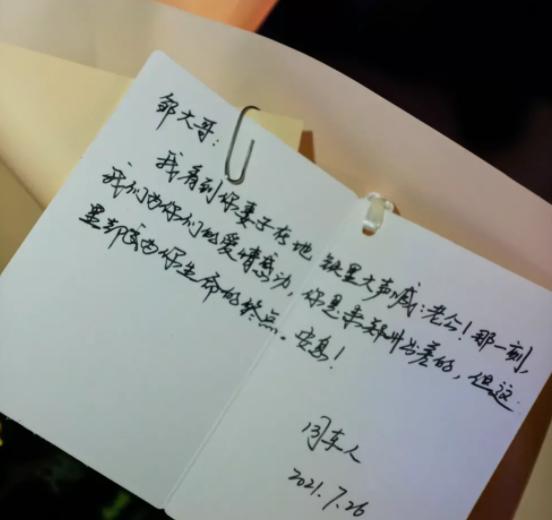 邹大哥：
我看到你妻子在地铁里大声喊：老公！那一刻，
我们为你们的爱情感动，你是来郑州出差的，但这
里却成为你生命的终点。安息！
同车人
2021.7.26